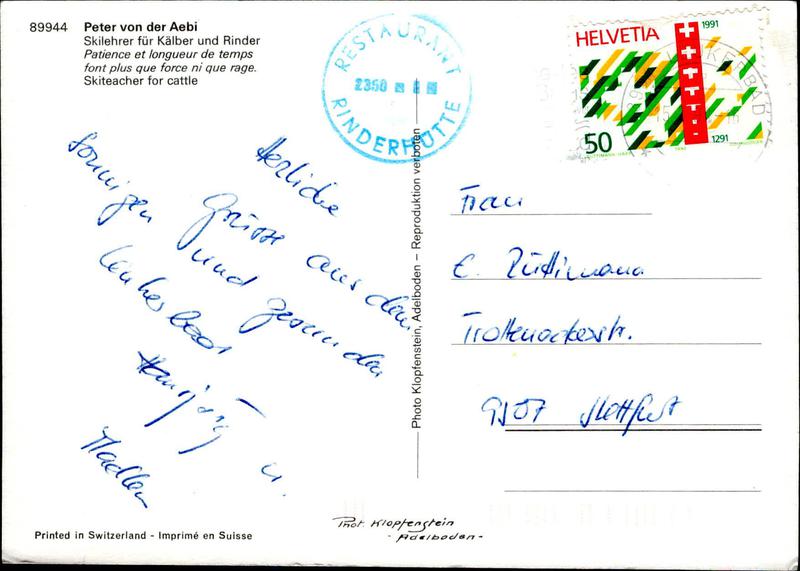 89944 Peter von der Aebi
Skilehrer für Kälber und Rinder
Patience et longueur de temps
font plus que force ni que rage.
Skiteacher for cattle
RESTAURANT
2350
RINDERHÜTTE
HELVETIA
1991
50
1291
Herzliche
Grüsse aus dem
sonnigen und gesunden
Leukerbad
Hansjörg u.
Madlen
Photo Klopfenstein, Adelboden – Reproduktion verboten
Frau
E. Rüttimann
Trottenackerstr.
9507 Stettfurt
Phot. Klopfenstein
- Adelboden -
Printed in Switzerland - Imprimé en Suisse